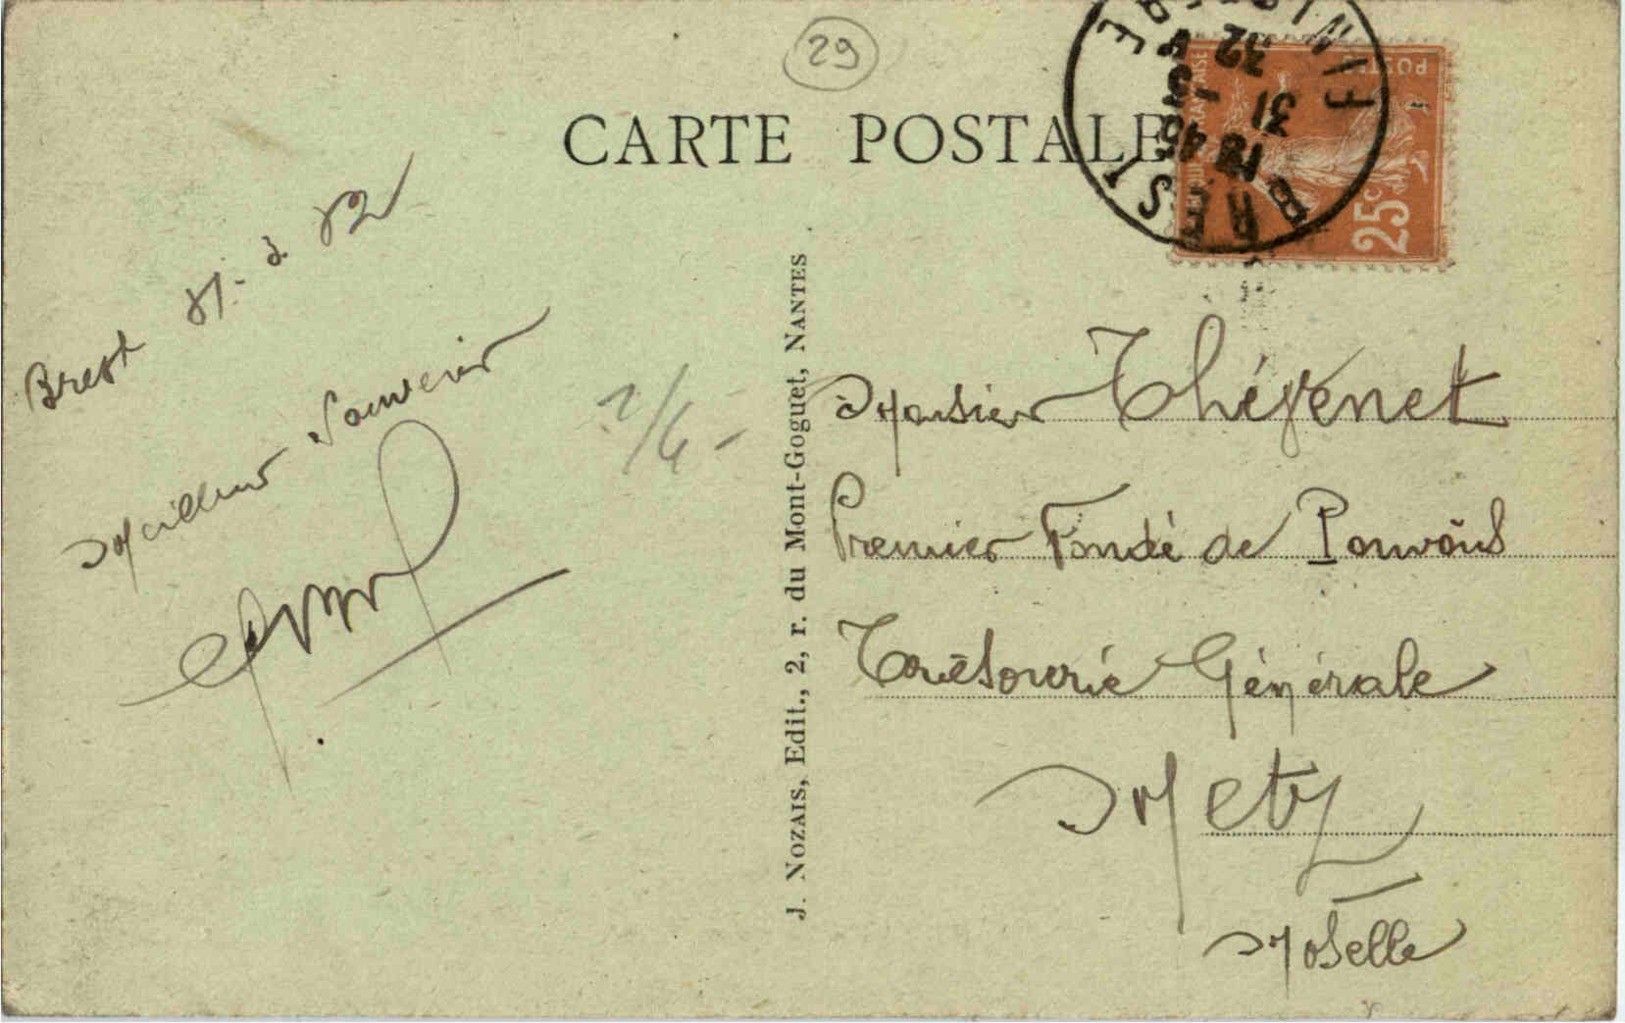 29
CARTE POSTALE
BREST
18 45
31
32
FINISTÈRE
POSTES
25c
Brest 31-3 32
Meilleur Souvenir
J. NOZAIS, Edit., 2, r. du Mont-Goguet, NANTES
Monsieur Thévenet
Premier Fondé de Pouvoirs
Trésorerie Générale
Metz
Moselle